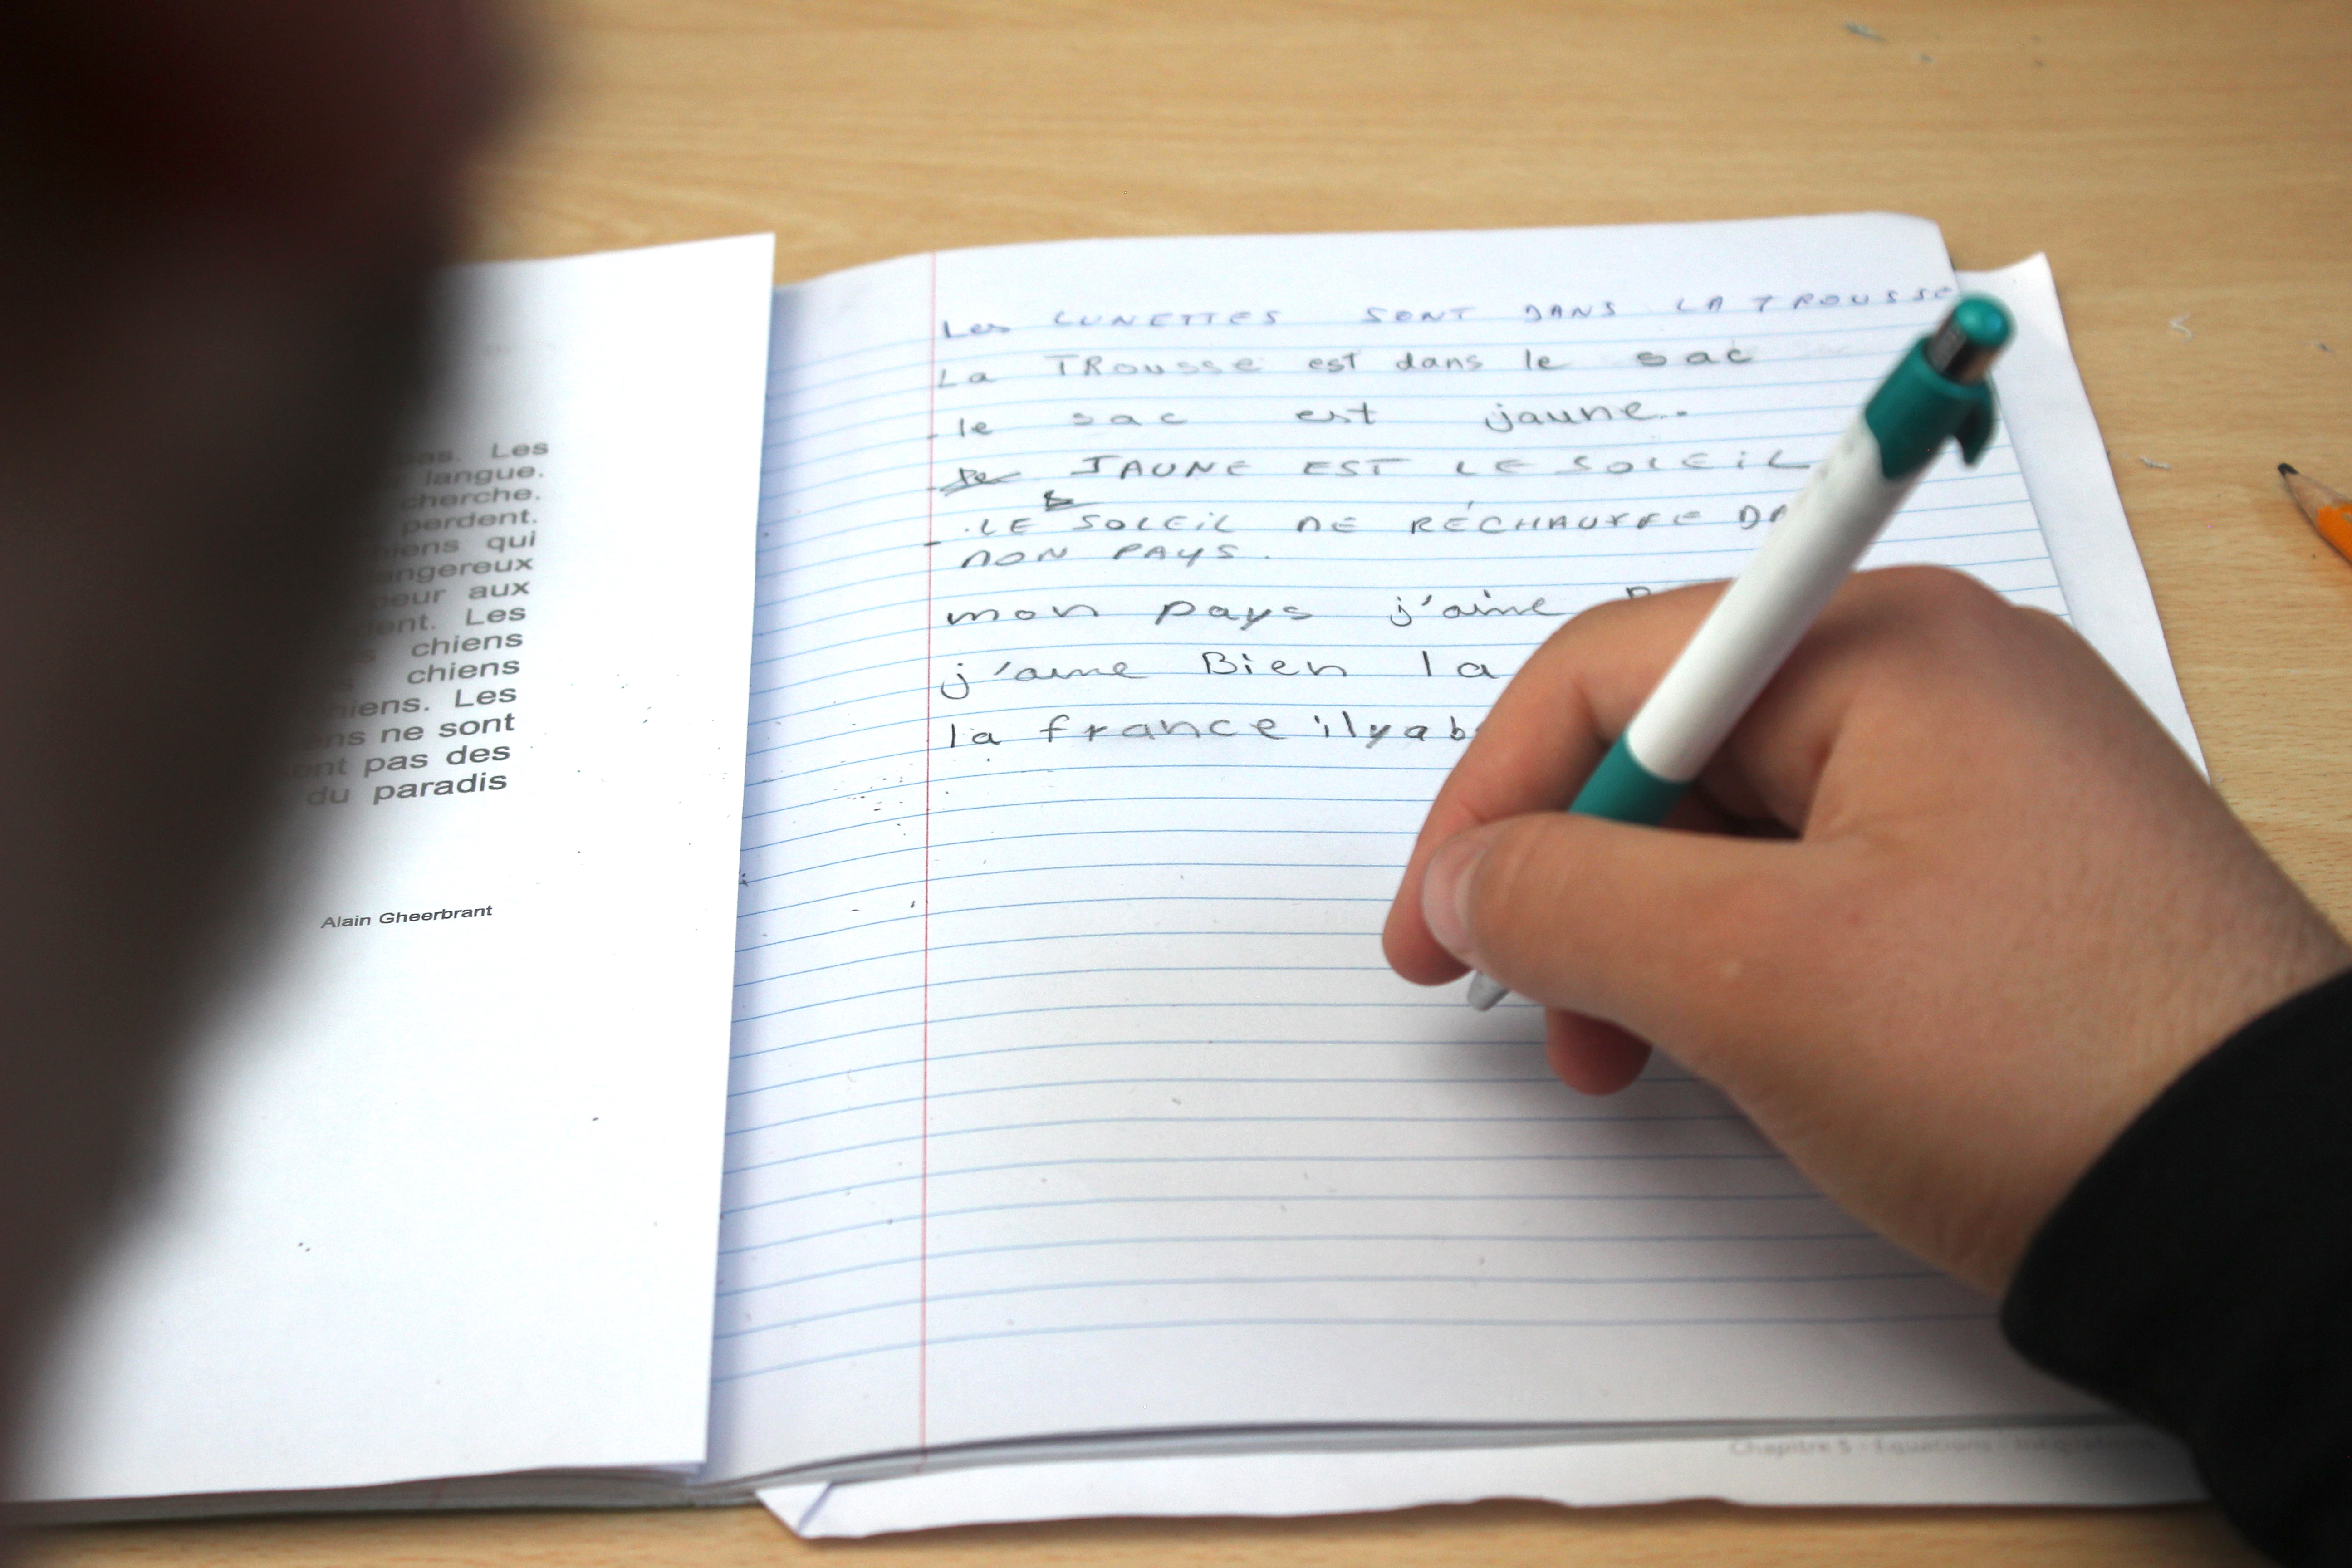 as. Les
langue.
cherche.
perdent.
qui
aux
Les
chiens
chiens
Les
ne sont
pas des
du paradis
Alain Gheerbrant
Les LUNETTES SONT DANS LA TROUSSE
La TRousse est dans le sac
- le sac est jaune..
JAUNE EST LE SOLEIL
- .LE SOLEIL NE RÉCHAUFFE
NON PAYS.
mon pays j'aime
j'aime Bien la
la france ilya
Chapitre 5 - Equations -